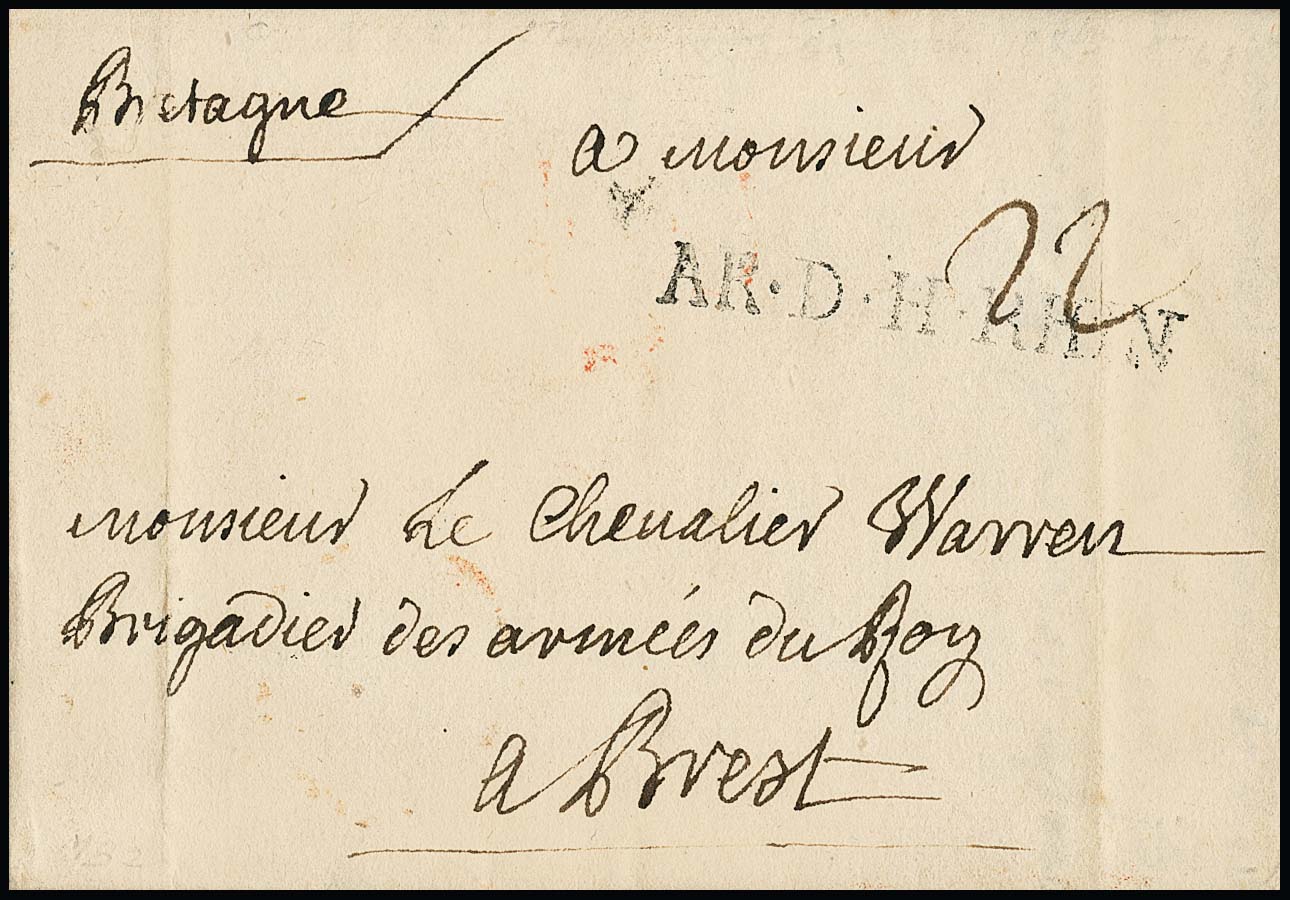 Bretagne
a monsieur
22
AR·D·H·RHIN
monsieur Le Chevalier Warren
Brigadier des armées du Roy
a Brest